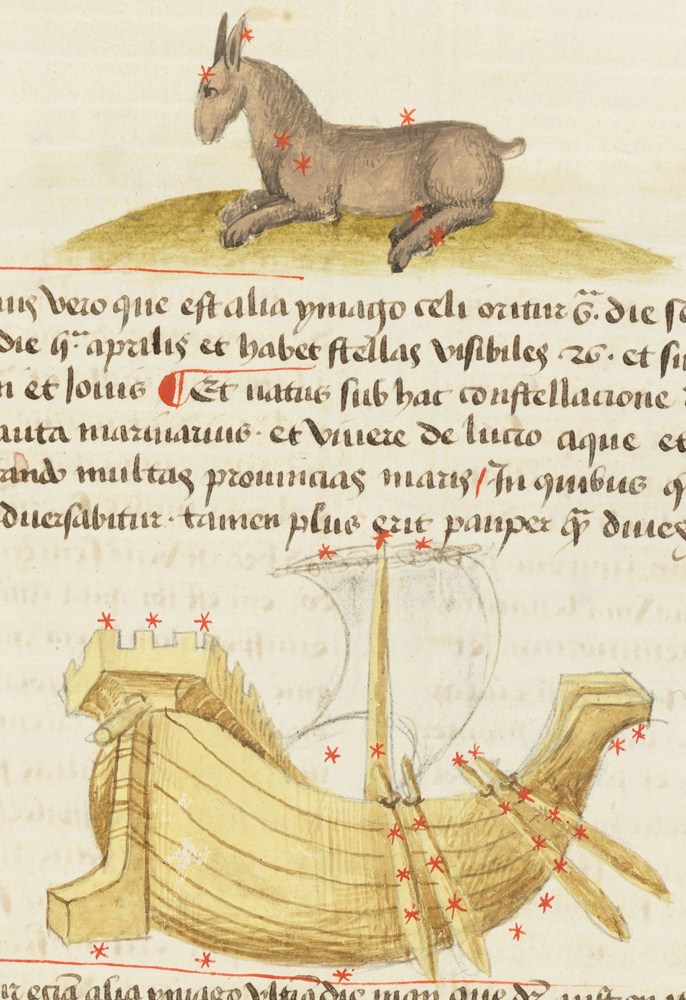 vero que est alia ymago celi oritur die
die aprilis et habet stellas visibiles 26 · et
et Iouis Et natus sub hac constellacione
marinarius · et viuere de lucro aque et
multas prouincias maris / In quibus
aduersabitur · tamen plus erit pauper qͫ diues
alia ymago die